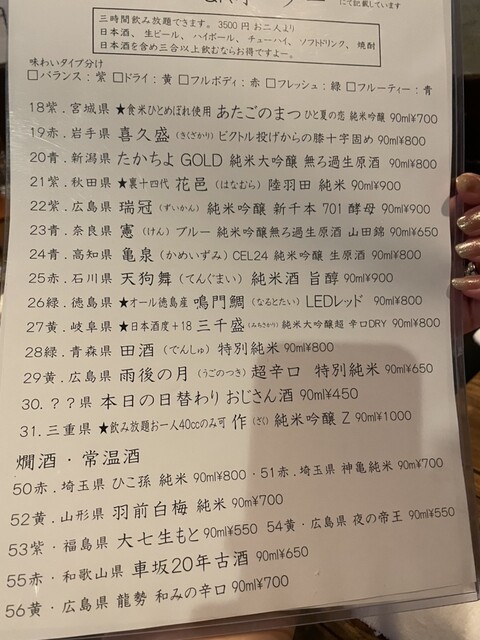 にて記載しています
三時間飲み放題できます。3500円 お二人より
日本酒、生ビール、ハイボール、チューハイ、ソフトドリンク、焼酎
日本酒を含め三合以上飲むならお得ですよー。
味わいタイプ分け
□バランス：紫 □ドライ：黄 □フルボディ：赤 □フレッシュ：緑 □フルーティー：青
18紫．宮城県 ★食米ひとめぼれ使用 あたごのまつ ひと夏の恋 純米吟醸 90ml¥700
19赤．岩手県 喜久盛（きくざかり）ビクトル投げからの膝十字固め 90ml¥800
20青．新潟県 たかちよ GOLD 純米大吟醸 無ろ過生原酒 90ml¥800
21紫．秋田県 ★裏十四代 花邑（はなむら）陸羽田 純米 90ml¥900
22紫．広島県 瑞冠（ずいかん）純米吟醸 新千本 701 酵母 90ml¥900
23青．奈良県 憲（けん）ブルー 純米吟醸無ろ過生原酒 山田錦 90ml¥650
24青．高知県 亀泉（かめいずみ）CEL24 純米吟醸 生原酒 90ml¥800
25赤．石川県 天狗舞（てんぐまい）純米酒 旨醇 90ml¥900
26緑．徳島県 ★オール徳島産 鳴門鯛（なるとたい）LEDレッド 90ml¥800
27黄．岐阜県 ★日本酒度＋18 三千盛（みちさかり）純米大吟醸超 辛口DRY 90ml¥800
28緑．青森県 田酒（でんしゅ）特別純米 90ml¥800
29黄．広島県 雨後の月（うごのつき）超辛口 特別純米 90ml¥650
30．？？県 本日の日替わり おじさん酒 90ml¥450
31．三重県 ★飲み放題お一人40ccのみ可 作（ざく）純米吟醸 Z 90ml¥1000
燗酒・常温酒
50赤．埼玉県 ひこ孫 純米 90ml¥800・51赤．埼玉県 神亀純米 90m¥700
52黄．山形県 羽前白梅 純米 90m¥700
53紫・福島県 大七生もと 90ml¥550 54黄・広島県 夜の帝王 90ml¥550
55赤・和歌山県 車坂20年古酒 90ml¥650
56黄・広島県 龍勢 和みの辛口 90ml¥700